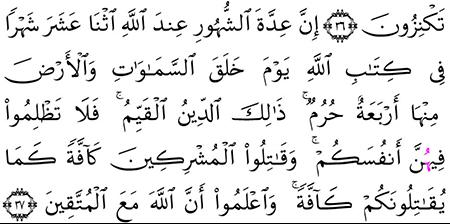 تَكْنِزُونَ ۝٣٦ إِنَّ عِدَّةَ ٱلشُّهُورِ عِندَ ٱللَّهِ ٱثْنَا عَشَرَ شَهْرًا
فِى كِتَٰبِ ٱللَّهِ يَوْمَ خَلَقَ ٱلسَّمَٰوَٰتِ وَٱلْأَرْضَ
مِنْهَآ أَرْبَعَةٌ حُرُمٌ ۚ ذَٰلِكَ ٱلدِّينُ ٱلْقَيِّمُ ۚ فَلَا تَظْلِمُوا۟
فِيهُنَّ أَنفُسَكُمْ ۚ وَقَٰتِلُوا۟ ٱلْمُشْرِكِينَ كَآفَّةً كَمَا
يُقَٰتِلُونَكُمْ كَآفَّةً ۚ وَٱعْلَمُوٓا۟ أَنَّ ٱللَّهَ مَعَ ٱلْمُتَّقِينَ ۝٣٧